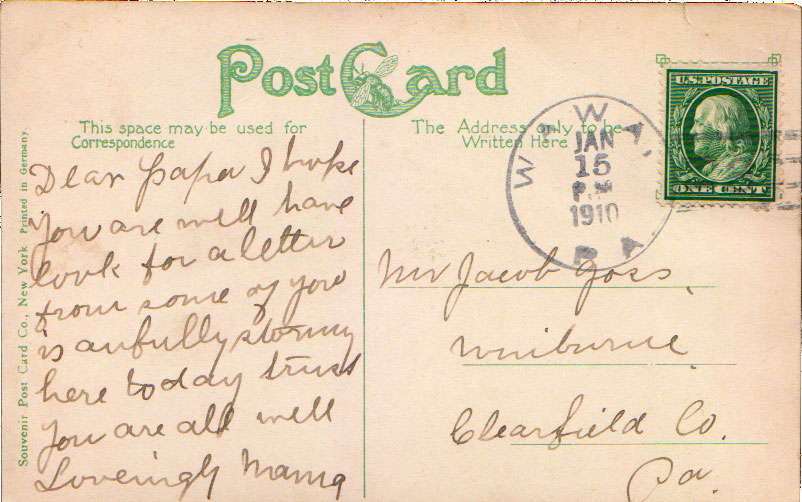 Post Card
This space may be used for
Correspondence
Dear Papa I hope
you are well have
look for a letter
from some of you
is awfully stormy
here to day trust
you are all well
Loveingly Mama
The Address only to be
Written Here
WAWA,
JAN
15
P.M
1910
PA.
U.S. POSTAGE
ONE CENT
Mr Jacob Goss,
Winburne
Clearfield Co.
Pa.
Souvenir Post Card Co., New York Printed in Germany.